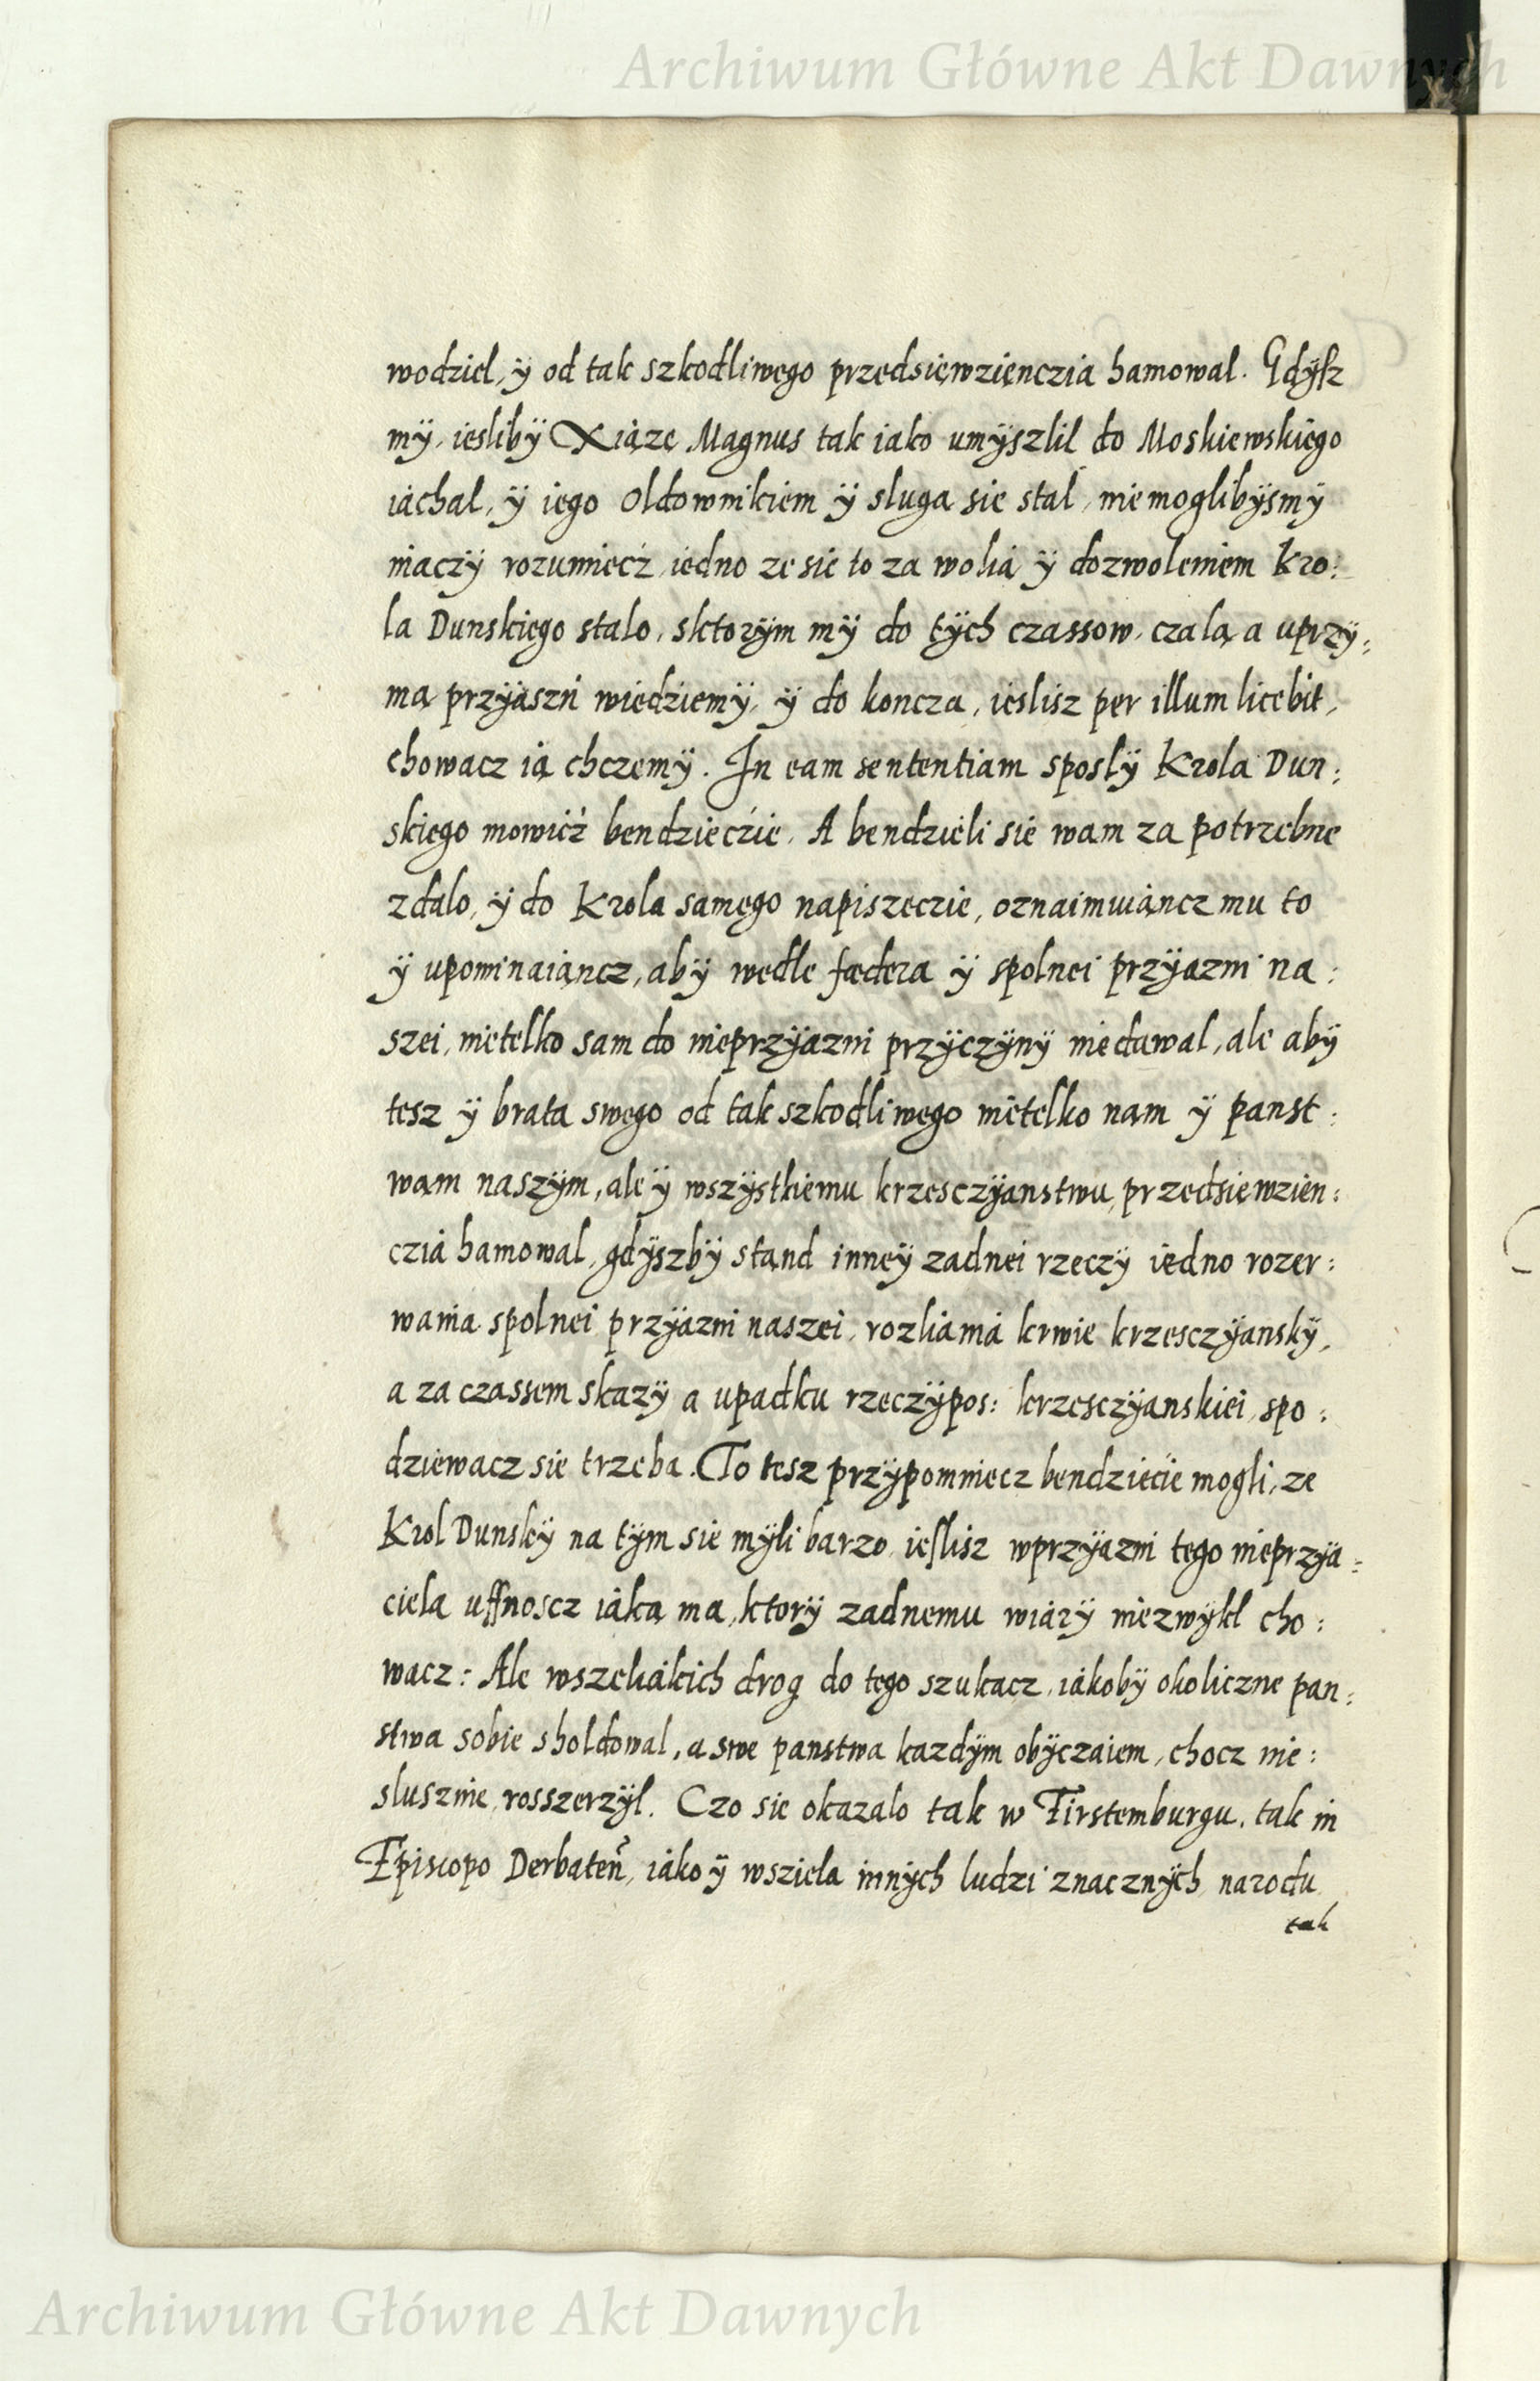 Archiwum Główne Akt Dawnych
wodziel, ÿ od tak szkodliwego przedsięwzięnczia hamowal. Gdÿsz
mÿ, ieslibÿ Xiąze Magnus tak iako umÿszlil do Moskiewskiego
iachal, ÿ iego Oldownikiem ÿ sluga sie stal, niemoglibÿsmÿ
inaczÿ rozumiecz, iedno ze sie to za wolią ÿ dozwoleniem Kro:
la Dunskiego stalo, sktorÿm mÿ do tÿch czassow, czalą a uprzÿ:
mą przÿaszń wiedziemÿ, ÿ do koncza, ieslisz per illum licebit,
chowacz ią chczemÿ. In eam sententiam sposlÿ Krola Dun:
skiego mowicz bendzieczie. A bendzieli sie wam za potrzebne
zdalo, ÿ do Krola samego napiszeczie, oznaimuiąncz mu to
ÿ upominaiąncz, abÿ wedle fædera ÿ spolnei przÿazni na:
szei, nietelko sam do nieprzÿazni przÿczÿnÿ niedawal, ale abÿ
tesz ÿ brata swego od tak szkodliwego nietelko nam ÿ panst:
wam naszÿm, ale ÿ wszÿstkiemu krzesczÿanstwu, przedsiewzien:
czia hamowal, gdÿszbÿ stąnd inneÿ zadnei rzeczÿ iedno rozer:
wania spolnei przÿazni naszei, rozliania krwie krzesczÿanskÿ,
a za czassem skazÿ a upadku rzeczÿpos: krzesczÿanskiei, spo:
dziewacz sie trzeba. To tesz przÿpomniecz bendziecie mogli, ze
Krol Dunskÿ na tÿm sie mÿli barzo, ieslisz wprzÿazni tego nieprzÿa:
ciela uffnoscz iaką ma, ktorÿ zadnemu wiarÿ niezwÿkl cho:
wacz: Ale wszeliakich drog do tego szukacz, iakobÿ okoliczne pan:
stwa sobie sholdowal, a swe panstwa kazdÿm obÿczaiem, chocz nie:
slusznie, rosszerzÿl. Czo sie okazalo tak w Firstemburgu, tak in
Episcopo Derbateń, iako ÿ wsziela innÿch ludzi znacznÿch, narodu
tak
Archiwum Główne Akt Dawnych